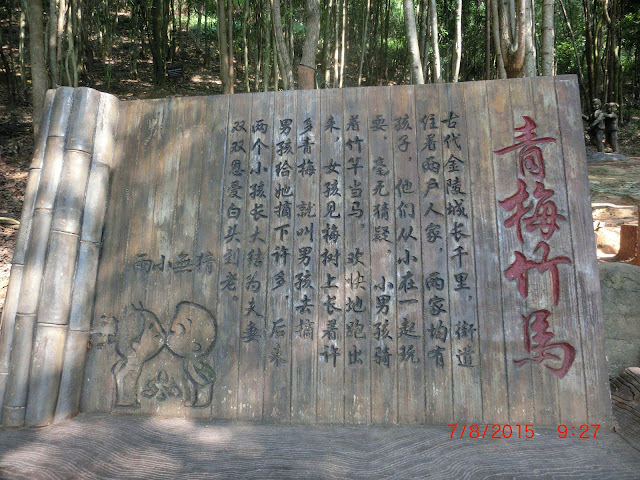 青梅竹马
古代金陵城长千里，街道
住着两户人家，两家均有
孩子，他们从小在一起玩
耍，毫无猜疑。小男孩骑
着竹竿当马，欢快地跑出
来，女孩见梅树上长着许
多青梅，就叫男孩去摘
男孩给她摘下许多，后来
两个小孩长大结为夫妻
双双恩爱白头到老。
两小無猜
7/8/2015 9:27